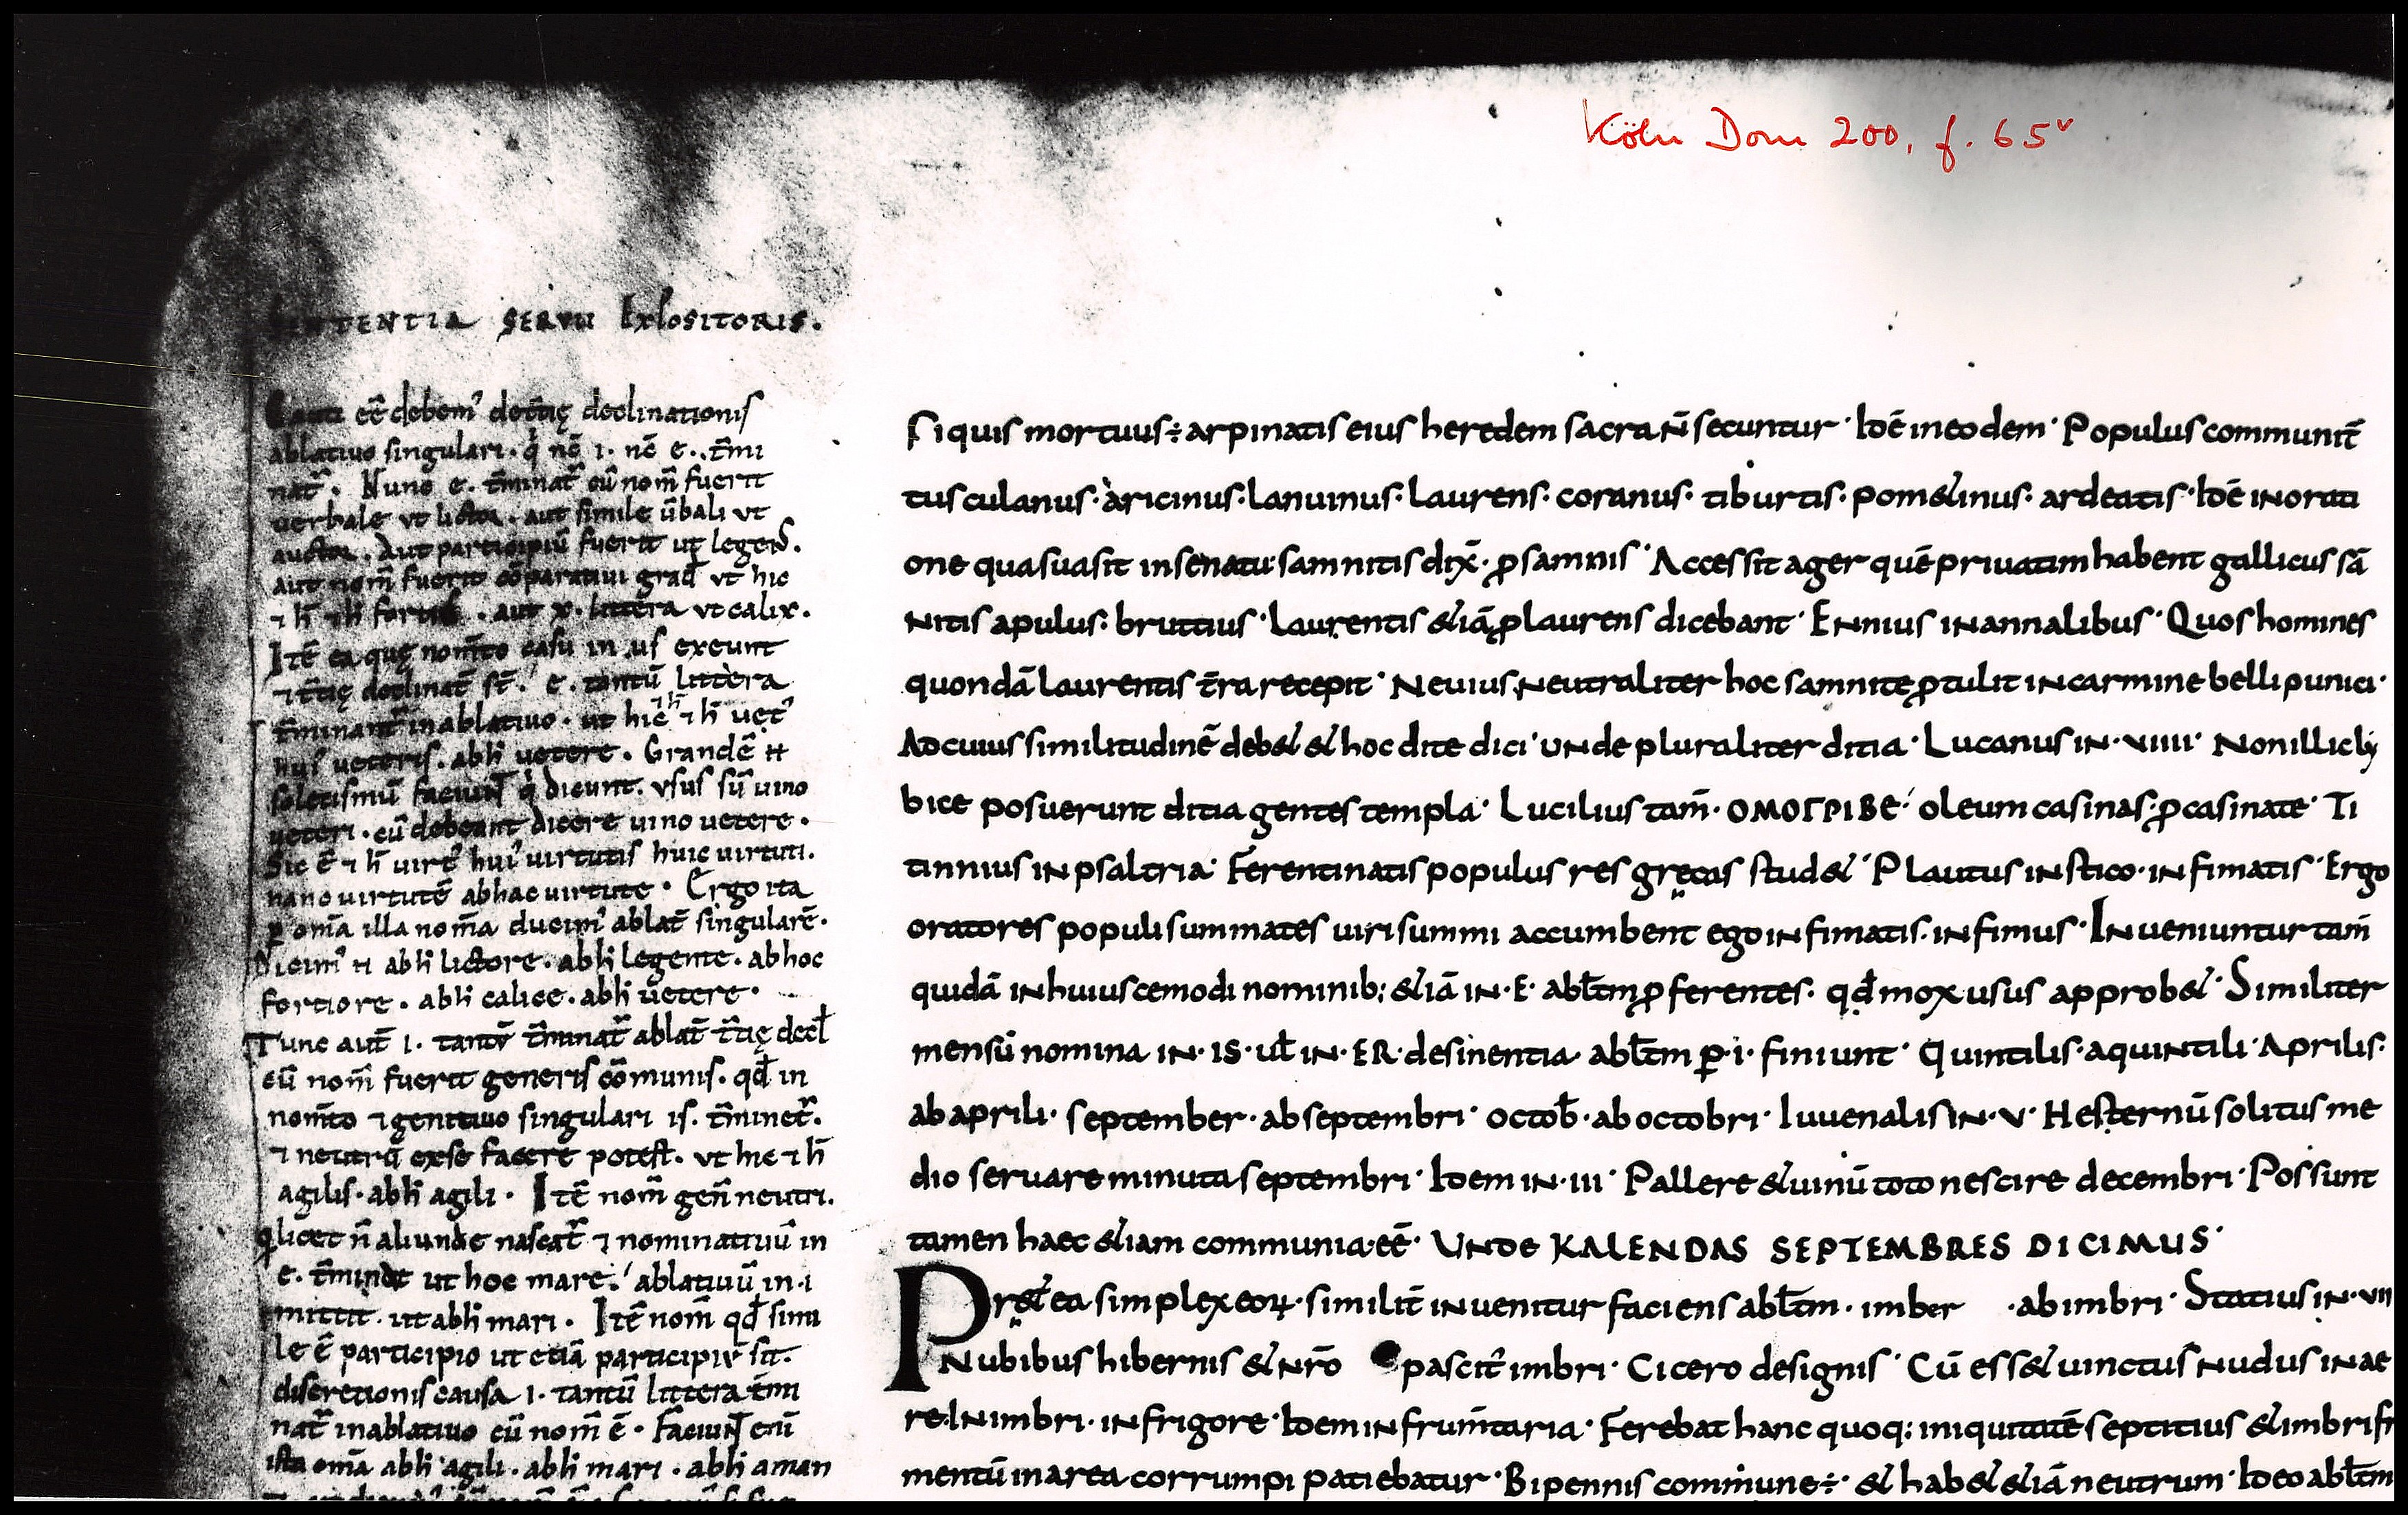 Köln Dom 200, f. 65v
SENTENTIA SERVII EXPOSITORIS.
Cauti eē debem' dē t̄tię declinationis
ablatiuo singulari. q̇ nc̄ i. nc̄ e. t̄mi
nat̄. Nunc e. t̄minat̄ cū nom̄ fuerit
uerbale vt lictor. aut simile ūbali vt
auctor. Aut participiū fuerit ut legens.
aut nom̄ fuerit cōparatiui grad̄ vt hic
⁊ h̄ ⁊ h̄ fortior. aut x. littera vt calix.
Itē ea quę nom̄to casu in us exeunt
⁊ t̄tię declinat̄ st̄.' e. tantū littera
t̄minant̄ in ablatiuo. ut hic ⁊ h̄ ⁊ h̄ uet'
hui' ueteris. abh̄ uetere. Grandē ⁊t
soletismū faciunt q̇ dicunt. vsus sū uino
ueteri. cū debeant dicere uino uetere.
Sic ē ⁊ h̄ uirt' hui' uirtutis huic uirtuti.
hanc uirtutē abhac uirtute. Ergo ita
ꝑ om̄a illa nom̄a ducim' ablat̄ singularē.
Dicim' ⁊t abh̄ lictore. abh̄ legente. abhoc
fortiore. abh̄ calice. abh̄ uetere.
Tunc aut̄ i. tantū t̄minat̄ ablat̄ t̄tię decl̄
cū nom̄ fuerit generis cōmunis. qđ in
nom̄to ⁊ genitiuo singulari is. t̄minet̄.
⁊ neutrū exse facere potest. vt hic ⁊ h̄
agilis. abh̄ agili. Itē nom̄ gen̄ neutri.
q licet n̄ aliunde nascat̄ ⁊ nominatiuū in
e. t̄minet ut hoc mare.' ablatiuū in .i
mittit. ut abh̄ mari. Itē nom̄ qđ simi
le ē participio ut etiā participiū sit.
discretionis causa i. tantū littera t̄mi
nat̄ in ablatiuo cū nom̄ ē. Faciunt eni
ista om̄a abh̄ agili. abh̄ mari. abh̄ aman
Siquis mortuus ÷ arpinatis eius heredem sacra n̄ secuntur· Idē in eodem· Populus communit̄
tusculanus· aricinus· lanuinus· laurens· coranus· tiburtis· pom&inus· ardeatis· Idē in orati
one qua suasit in senatu· samnitis dix̄· ꝓ samnis· Accessit ager quē priuatim habent gallicus sā
nitis apulus· bruttius· Laurentis &iā ꝓ laurens dicebant· Ennius in annalibus· Quos homines
quondā laurentis t̄ra recepit· Neuius neutraliter hoc samnite ꝓtulit in carmine belli punici·
Ad cuius similitudinē deb& & hoc dite dici· unde pluraliter ditia· Lucanus in· viiii· Non illic ly
bice posuerunt ditia gentes templa· Lucilius tam̄· ΟΜΟΓΡΙΒΕ· oleum casinas· ꝓ casinate· Ti
tinnius in psaltria· Ferentinatis populus res gręcas stud&· Plautus in stico· infimatis· Ergo
oratores populi summates uiri summi accumbent ego infimatis· infimus· Inueniuntur tam̄
quidā in huiuscemodi nominib; &iā in· E· abl̄tm ꝓferentes· qđ mox usus approb&· Similiter
mensū nomina in· is· ul̄ in· er· desinentia· abl̄tm ꝑ ·i· finiunt· Quintilis· a quintili· Aprilis·
ab aprili· september· ab septembri· octob̄· ab octobri· Iuuenalis in· v· Hesternū solitus me
dio seruare minuta septembri· Idem in· iii· Pallere & uinū toto nescire decembri· Possunt
tamen haec &iam communia eē· UNDE KALENDAS SEPTEMBRES DICIMUS·
Pręt& ea simplex eoꝝ· similit̄ inuenitur faciens abl̄tm· imber ·ab imbri· Statius in· vii
Nubibus hibernis & nr̄o pascit̄ imbri· Cicero designis· Cū ess& uinctus nudus in ae
re· In imbri· in frigore· Idem in frum̄taria· Ferebat hanc quoq; iniquitatē septitius & imbri fr
mentū in area corrumpi patiebatur· Bipennis commune÷· & hab& &iā neutrum· Ideo abl̄tm